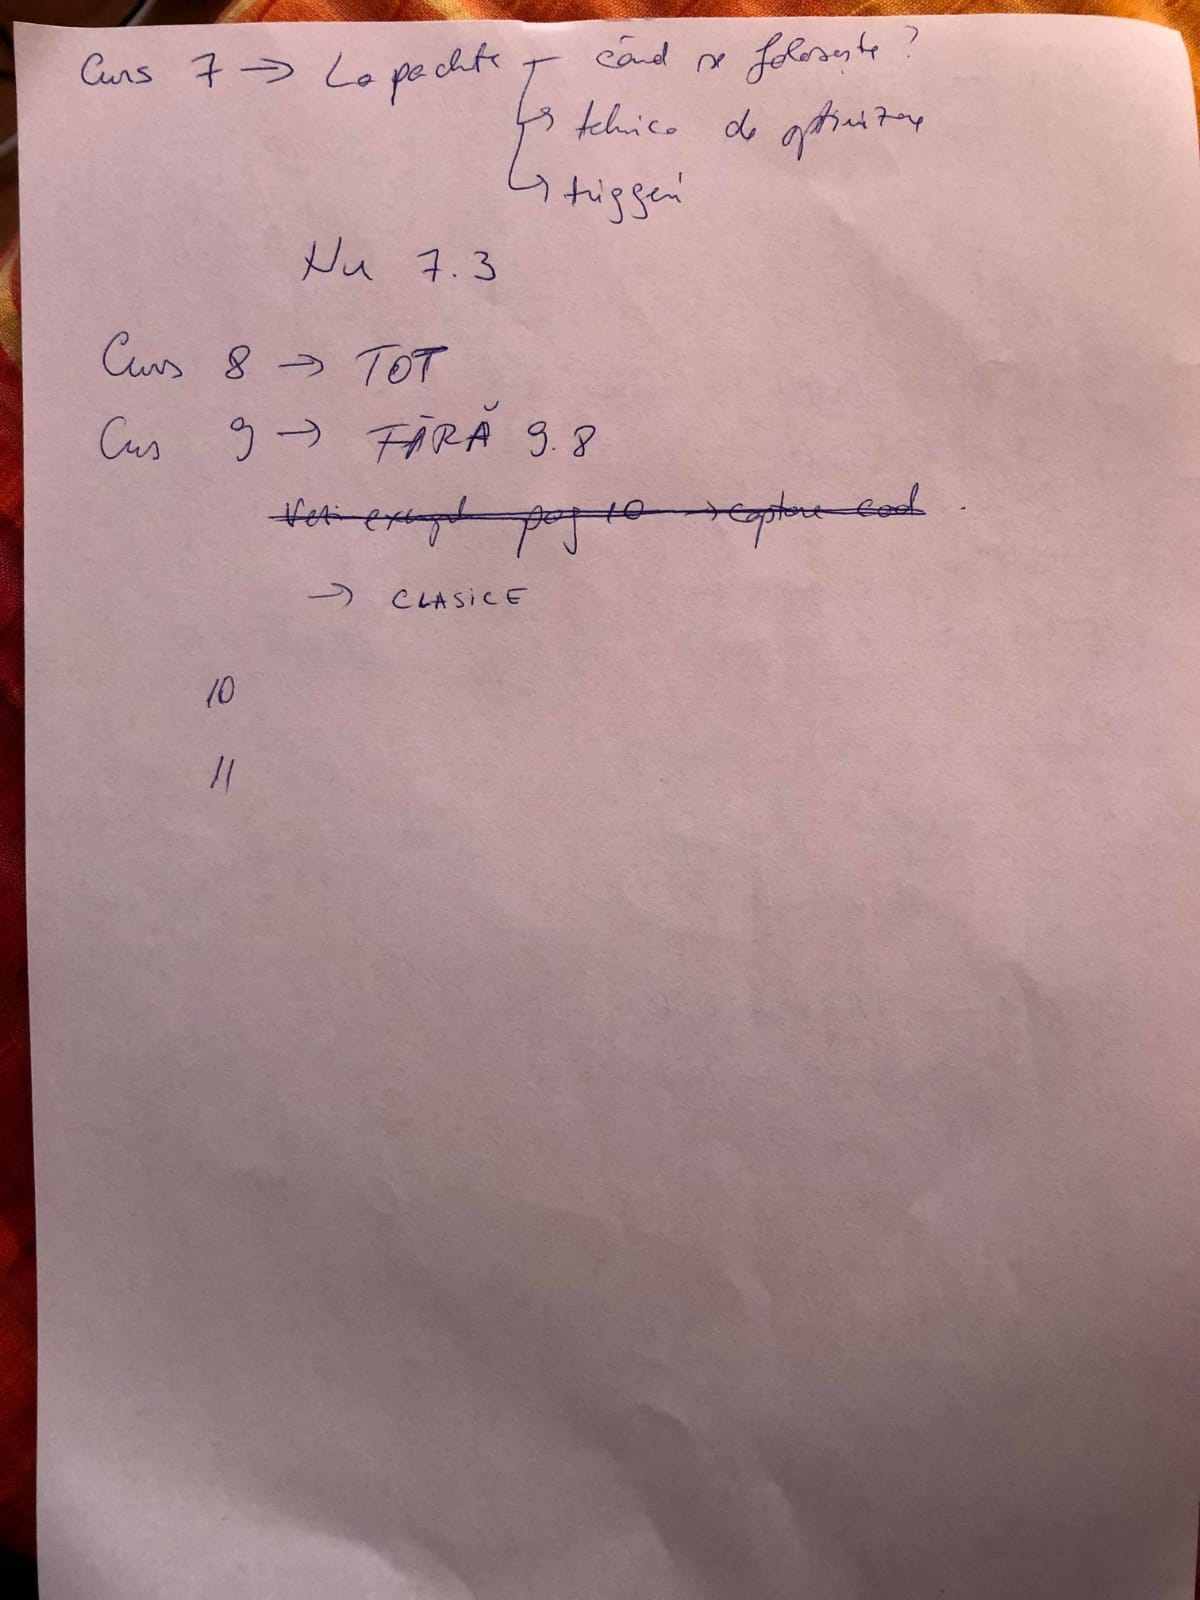 Curs 7 → La pachete → când se folosește?
→ tehnica de optimizare
→ triggeri
Nu 7.3
Curs 8 → TOT
Curs 9 → FĂRĂ 9.8
Vezi exemplu pag 10 → captare cod
→ CLASICE
10
11